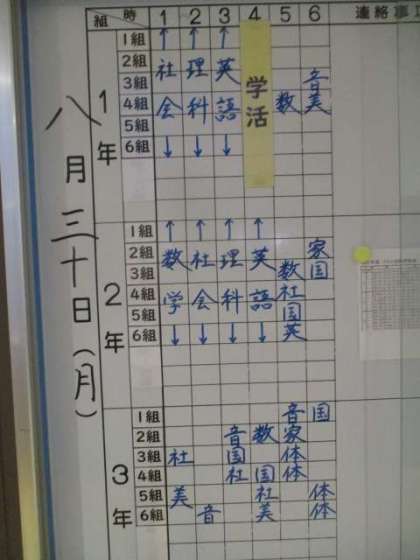 組 時 1 2 3 4 5 6 連絡事項
八月三十日(月)
1年
1組 ↑ ↑ ↑
2組 社 理 英
3組 音
4組 会 科 語 数 美
5組
6組 ↓ ↓ ↓
学活
2年
1組 ↑ ↑ ↑ ↑
2組 数 社 理 英 家
3組 数 国
4組 学 会 科 語 社
5組 国
6組 ↓ ↓ ↓ ↓ 英
3年
1組 音 国
2組 音 数 家
3組 社 国 体
4組 社 国 体
5組 美 社 体
6組 音 美 体